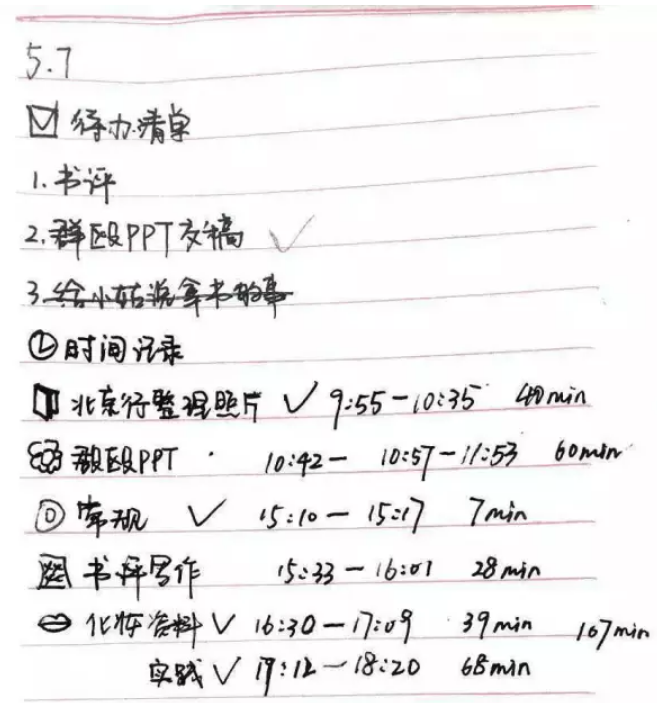 5.7
☑ 待办清单
1. 书评
2. 群殴PPT交稿 ✓
3. 给小姑说拿书的事
时间记录
北京行整理照片 ✓ 9:55-10:35 40min
群殴PPT · 10:42- 10:57-11:53 60min
常规 ✓ 15:10-15:17 7min
书评写作 15:33-16:01 28min
化妆资料 ✓ 16:30-17:09 39min 107min
实践 ✓ 17:12-18:20 68min